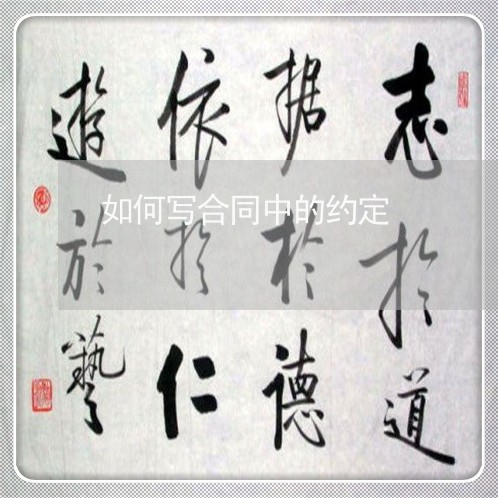 志於道
据於德
依於仁
遊於藝
如何写合同中的约定